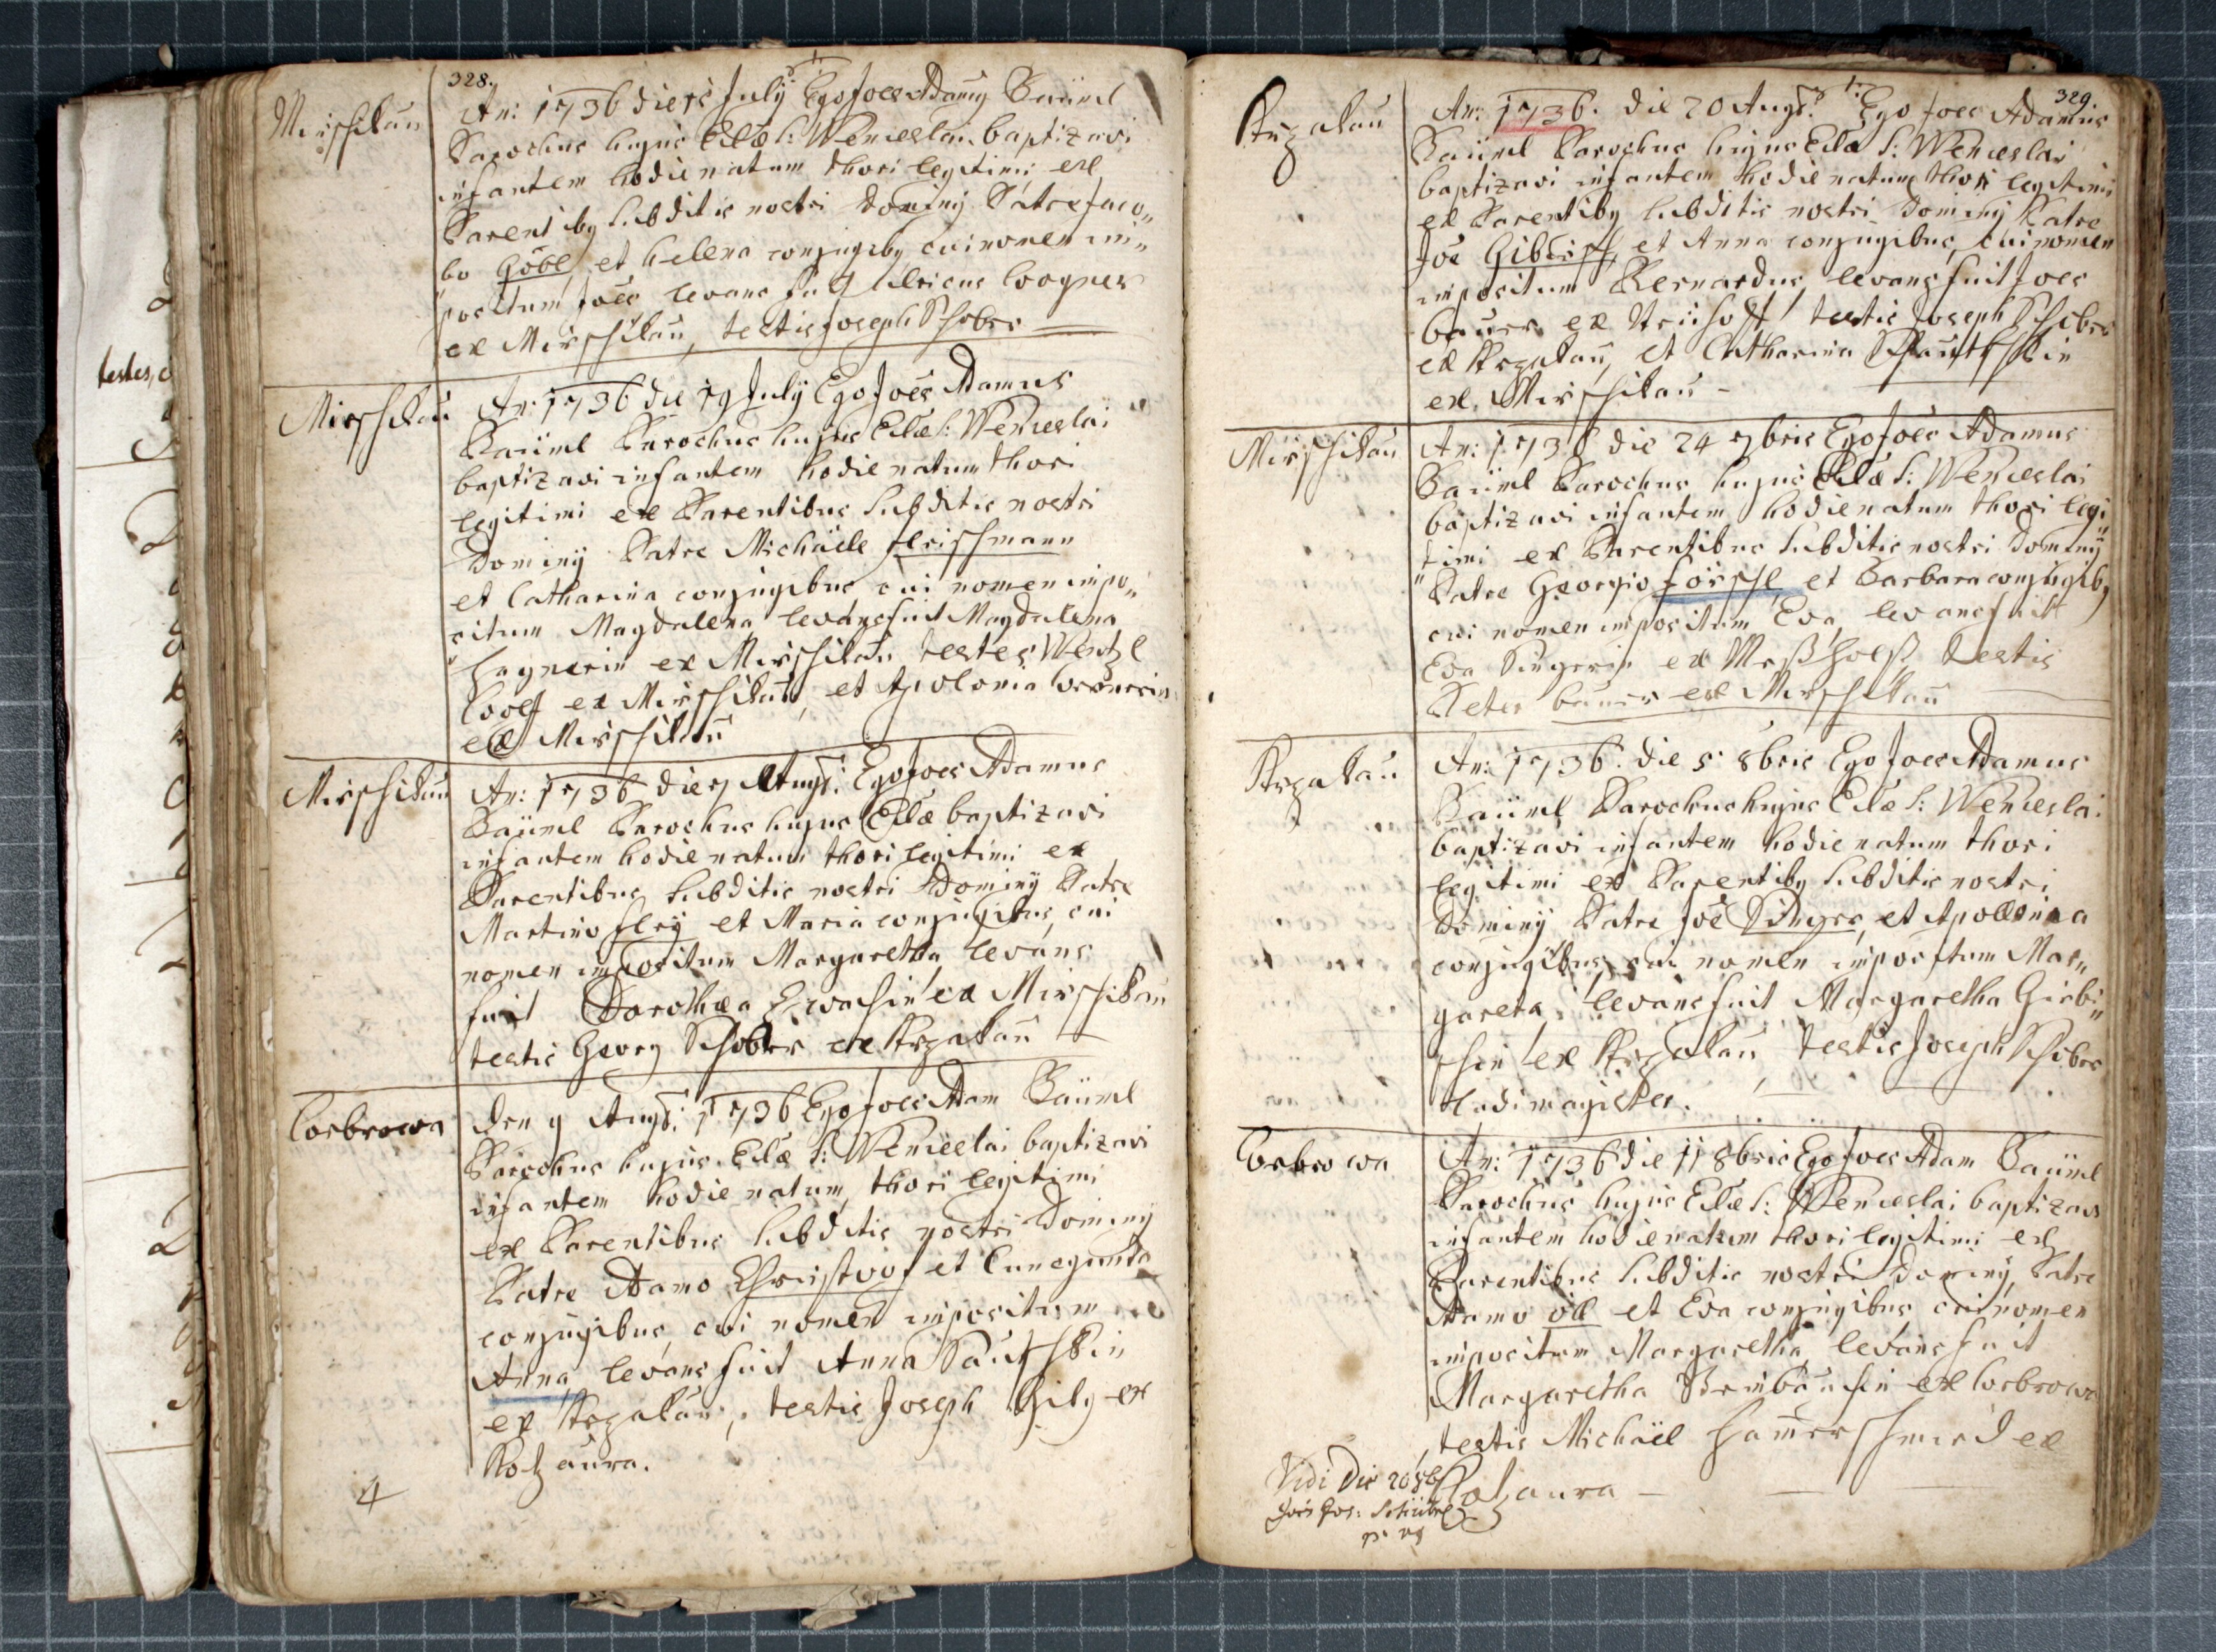 testes,
328.
Mirschikau
An: 1736 die July Ego Joes Adamus Baüml
Parochus hujus Eclæ S: Wenceslai baptizavi
infantem hodie natum thori legitimi ex
Parentibus subditis nostri Dominÿ Patre Jaco„
bo Göbl et helena conjugibus, cui nomen im„
positum Joes levans fuit Ulricus wagner
ex Mirschikau, testis Joseph Schober
Mirschikau
An: 1736 die 19 July Ego Joes Adamus
Baüml Parochus hujus Eclæ S: Wenceslai
baptizavi infantem hodie natum thori
legitimi ex Parentibus subditis nostri
Dominÿ Patre Michäele fleischmann
et Catharina conjugibus, cui nomen impo„
situm Magdalena levans fuit Magdalena
ex Mirschikau testes Wentzl
Woolf ex Mirschikau, et Apolonia
ex Mirschikau
Mirschikau
An: 1736 die 7 Augs: Ego Joes Adamus
Baüml Parochus hujus Eclæ baptizavi
infantem hodie natum thori legitimi ex
Parentibus subditis nostri Dominÿ Patre
Martino fleÿ et Maria conjugibus, cui
nomen impositum Margaretha levans
fuit Dorothæa ex Mirschikau
testis Georg Schober ex Strzakau
Worbrowa
Den 9 Augs: 1736 Ego Joes Adam Baüml
Parochus hujus Eclæ S: Wenceslai baptizavi
infantem hodie natum, thori legitimi
ex Parentibus subditis nostri Dominÿ
Patre Adamo Christoof et Cunegunta
conjugibus, cui nomen impositum
Anna levans fuit Anna
ex Strzakau, testis Joseph Hilg ex
Kotzaura.
4
329.
Strzakau
An: 1736. die 20 Augs: Ego Joes Adamus
Baüml Parochus hujus Eclæ S: Wenceslai
baptizavi infantem hodie natum thori legitimi
ex Parentibus subditis nostri Dominÿ Patre
Joe Gibisch et Anna conjugibus, cui nomen
impositum Bernardus, levans fuit Joes
bauer ex Neühoff testis Joseph Schober
ex Strzakau, et Catharina
ex Mirschikau
Mirschikau
An: 1736 die 24 7bris Ego Joes Adamus
Baüml Parochus hujus Eclæ S: Wenceslai
baptizavi infantem hodie natum thori legi„
timi ex Parentibus subditis nostri Dominÿ
Patre Georgio förschl et Barbara conjugibus
cui nomen impositum Eva, levans fuit
Eva Singerin ex testis
Peter bauer ex Mirschikau
Strzakau
An: 1736. die 5 8bris Ego Joes Adamus
Baüml Parochus hujus Eclæ S: Wenceslai
baptizavi infantem hodie natum thori
legitimi ex Parentibus subditis nostri
Dominÿ Patre Joe Singer, et Apollonia
conjugibus, cui nomen impositum Mar„
gareta, levans fuit Margaretha Girbi„
schin ex Strzakau, testis Joseph Schober
ludimagister.
Worbrowa
An: 1736 die 11 8bris Ego Joes Adam Baüml
Parochus hujus Eclæ S: Wenceslai baptizavi
infantem hodie natum thori legitimi ex
Parentibus subditis nostri Dominÿ, Patre
Adamo öll et Eva conjugibus cui nomen
impositum Margaretha levans fuit
Margaretha ex Worbrowa
testis Michäel hamerschmied ex
Kotzaura
Vidi Die 20 8b